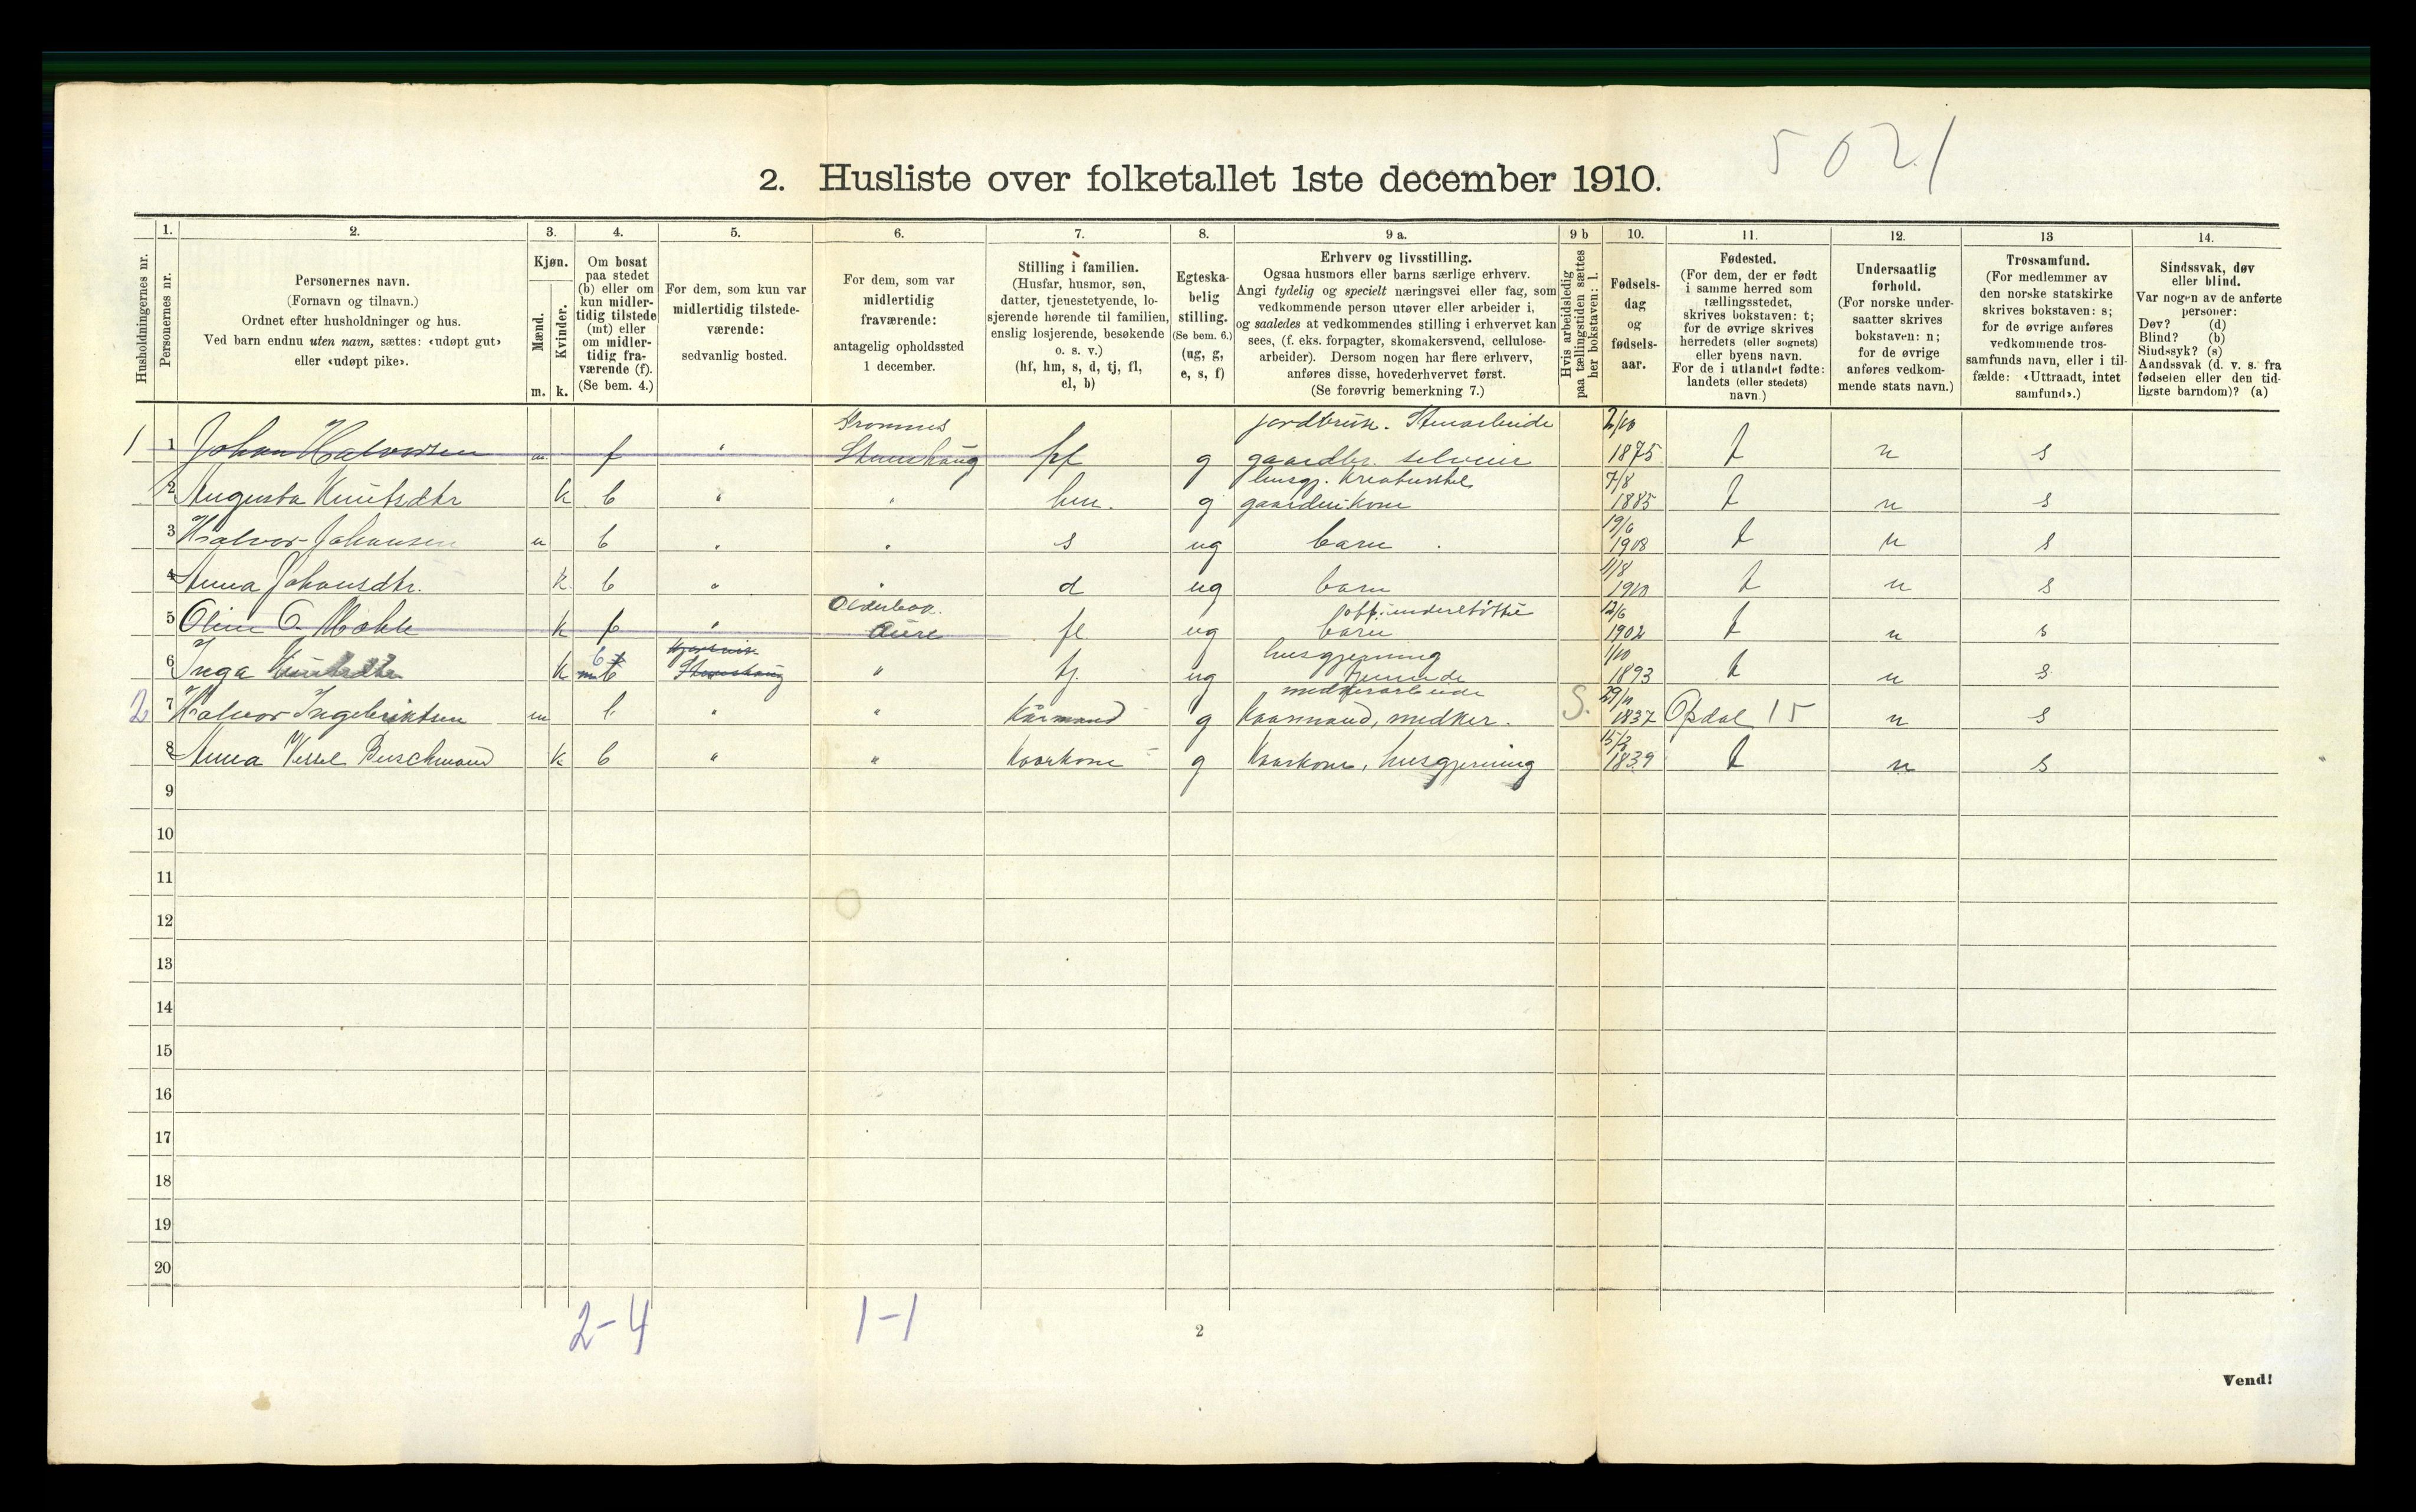 5021
2. Husliste over folketallet 1ste december 1910.
Husholdningernes nr.
1.
Personernes nr.
2.
Personernes navn.
(Fornavn og tilnavn.)
Ordnet efter husholdninger og hus.
Ved barn endnu uten navn, sættes: «udøpt gut»
eller «udøpt pike».
3.
Kjøn.
Mænd.
Kvinder.
m. k.
4.
Om bosat
paa stedet
(b) eller om
kun midler-
tidig tilstede
(mt) eller
om midler-
tidig fra-
værende (f).
(Se bem. 4.)
5.
For dem, som kun var
midlertidig tilstede-
værende:
sedvanlig bosted.
6.
For dem, som var
midlertidig
fraværende:
antagelig opholdssted
1 december.
7.
Stilling i familien.
(Husfar, husmor, søn,
datter, tjenestetyende, lo-
sjerende hørende til familien,
enslig losjerende, besøkende
o. s. v.)
(hf, hm, s, d, tj, fl,
el, b)
8.
Egteska-
belig
stilling.
(Se bem. 6.)
(ug, g,
e, s, f)
9 a.
Erhverv og livsstilling.
Ogsaa husmors eller barns særlige erhverv.
Angi tydelig og specielt næringsvei eller fag, som
vedkommende person utøver eller arbeider i,
og saaledes at vedkommendes stilling i erhvervet kan
sees, (f. eks. forpagter, skomakersvend, cellulose-
arbeider). Dersom nogen har flere erhverv,
anføres disse, hovederhvervet først.
(Se forøvrig bemerkning 7.)
9 b
Hvis arbeidsledig
paa tællingstiden sættes
her bokstaven: l.
10.
Fødsels-
dag
og
fødsels-
aar.
11.
Fødested.
(For dem, der er født
i samme herred som
tællingsstedet,
skrives bokstaven: t;
for de øvrige skrives
herredets (eller sognets)
eller byens navn.
For de i utlandet fødte:
landets (eller stedets)
navn.)
12.
Undersaatlig
forhold.
(For norske under-
saatter skrives
bokstaven: n;
for de øvrige
anføres vedkom-
mende stats navn.)
13
Trossamfund.
(For medlemmer av
den norske statskirke
skrives bokstaven: s;
for de øvrige anføres
vedkommende tros-
samfunds navn, eller i til-
fælde: «Uttraadt, intet
samfund».)
14.
Sindssvak, døv
eller blind.
Var nogen av de anførte
personer:
Døv? (d)
Blind? (b)
Sindssyk? (s)
Aandssvak (d. v. s. fra
fødselen eller den tid-
ligste barndom)? (a)
jordbruk. Stenarbeide 2/10
1 1 Johan Halvorsen m f " hf g gaardbr. selveier 1875 t n s
husgj. Kreaturstel 7/8
2 Augusta Knutsdtr k b " " hm. g gaardmkone 1885 t n s
19/6
3 Halvor Johansen m b " " s ug barn 1908 t n s
11/8
4 Anna Johansdtr. k b " " d ug barn 1910 t n s
12/6
5 k f " Aure fl ug barn 1902 t n s
husgjerning 1/10
6 Inga k b " tj ug 1893 t n s
29/11
2 7 Halvor Ingebriktsen m b " " Kårmand g Kaarmand, S. 1837 Opdal 15 n s
15/3
8 Anna Vessel Buschmand k b " " Kaarkone g Kaarkone, husgjerning 1839 t n s
9
10
11
12
13
14
15
16
17
18
19
20
2-4 1-1
2
Vend!